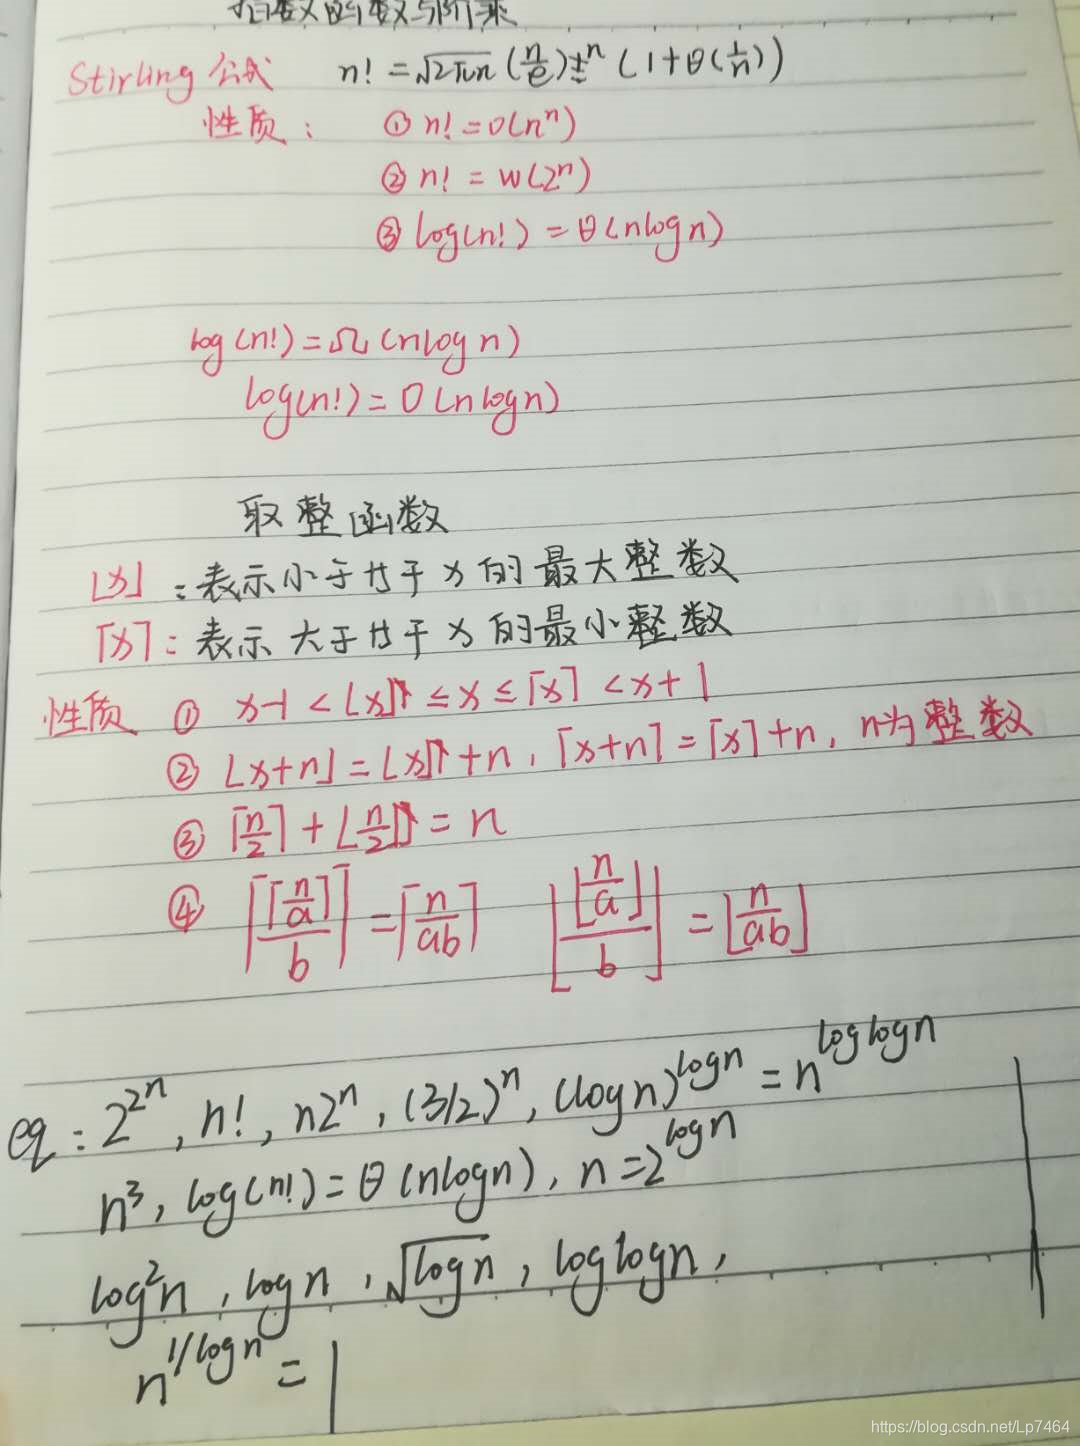 Stirling 公式 n! = √2πn (n/e)^n (1+θ(1/n))
性质: ① n! = o(n^n)
② n! = W(2^n)
③ log(n!) = θ(nlogn)
log(n!) = Ω(nlogn)
log(n!) = O(nlogn)
取整函数
⌊x⌋ : 表示小于廿于 x 的最大整数
⌈x⌉ : 表示大于廿于 x 的最小整数
性质 ① x-1 < ⌊x⌋ ≤ x ≤ ⌈x⌉ < x+1
② ⌊x+n⌋ = ⌊x⌋+n, ⌈x+n⌉ = ⌈x⌉+n, n为整数
③ ⌈n/2⌉ + ⌊n/2⌋ = n
④ ⌈⌈n/a⌉/b⌉ = ⌈n/ab⌉ ⌊⌊n/a⌋/b⌋ = ⌊n/ab⌋
eq: 2^2^n, n!, n2^n, (3/2)^n, (logn)^logn = n^loglogn
n^3, log(n!) = θ(nlogn), n = 2^logn
log^2n, logn, √logn, loglogn,
n^1/logn = 1
https://blog.csdn.net/Lp7464